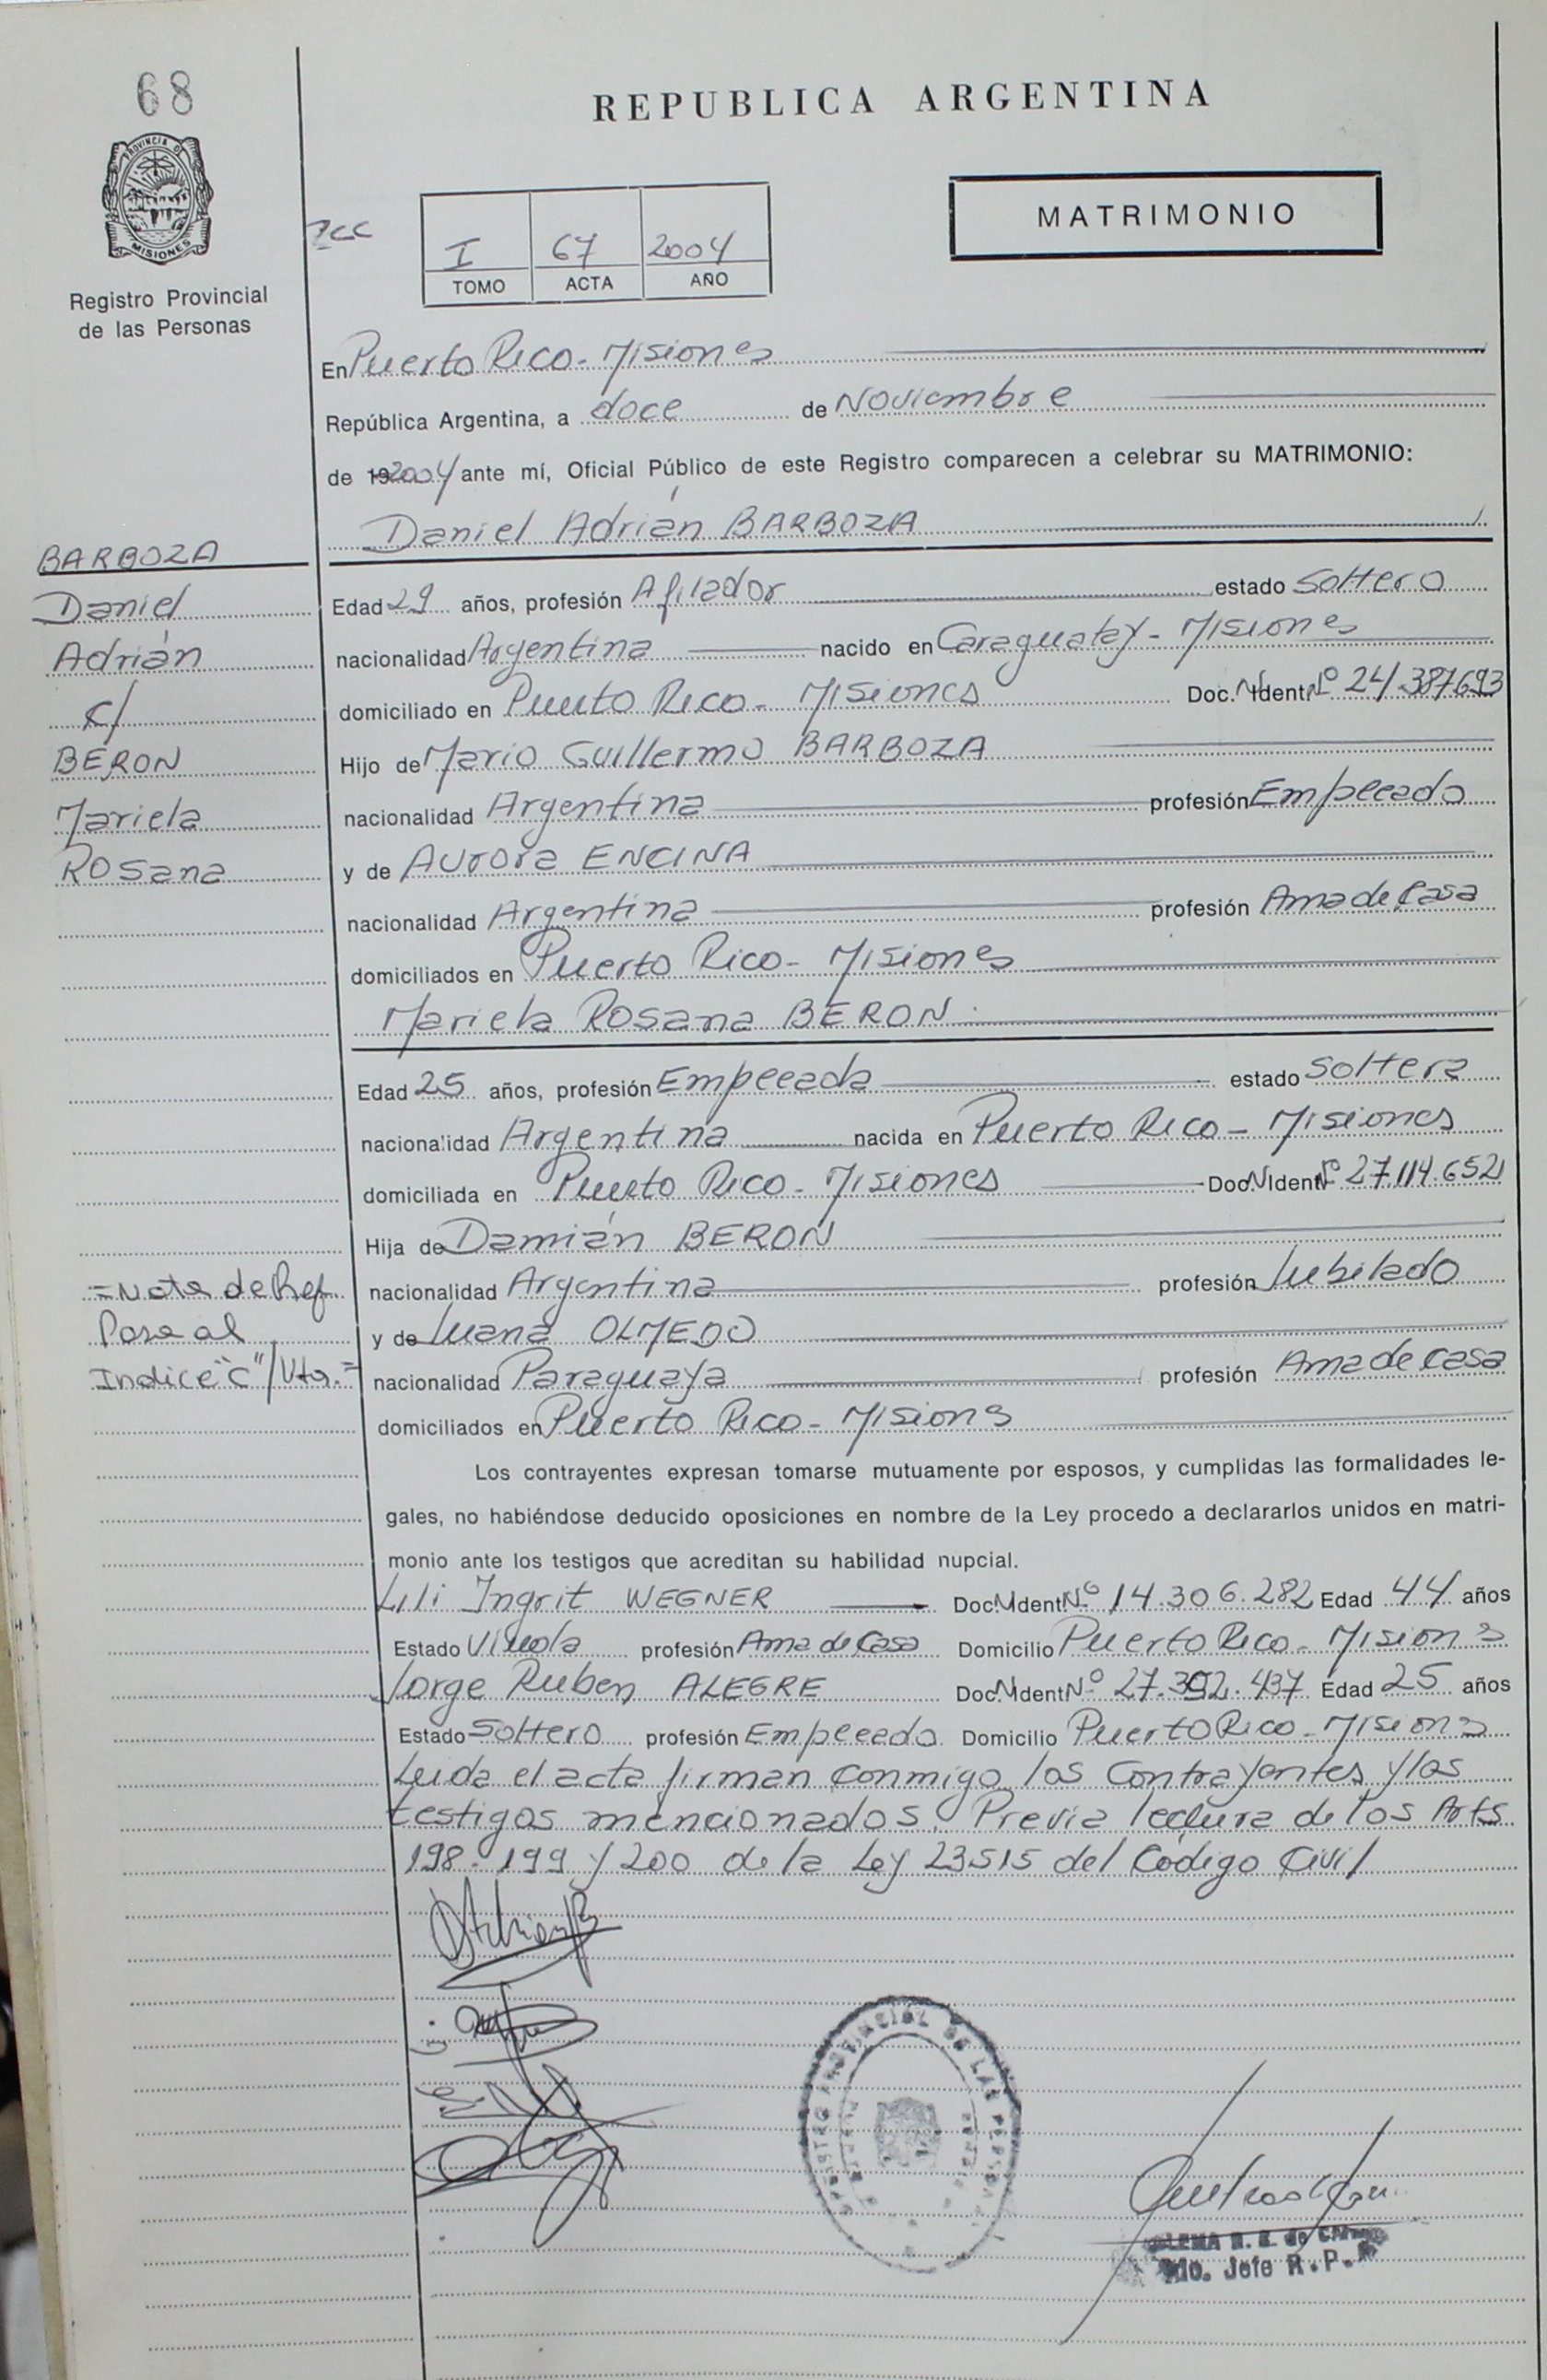 68
REPUBLICA ARGENTINA
PROVINCIA DE
MISIONES
MATRIMONIO
I 67 2004
TOMO ACTA AÑO
Registro Provincial
de las Personas
En Puerto Rico - Misiones
República Argentina, a doce de Noviembre
de 19 2004 ante mí, Oficial Público de este Registro comparecen a celebrar su MATRIMONIO:
Daniel Adrián BARBOZA
BARBOZA
Daniel
Adrián
c/
BERON
Mariela
Rosana
Edad 29 años, profesión Afilador estado Soltero
nacionalidad Argentina nacido en Caraguatay - Misiones
domiciliado en Puerto Rico - Misiones Doc. N. Ident. Nº 24/387693
Hijo de Mario Guillermo BARBOZA
nacionalidad Argentina profesión Empleado
y de Aurora ENCINA
nacionalidad Argentina profesión Ama de Casa
domiciliados en Puerto Rico - Misiones
Mariela Rosana BERON
Edad 25 años, profesión Empleada estado Soltera
nacionalidad Argentina nacida en Puerto Rico - Misiones
domiciliada en Puerto Rico - Misiones Doc. N. Ident. Nº 27.114.652
Hija de Damián BERON
nacionalidad Argentina profesión Jubilado
y de Juana OLMEDO
nacionalidad Paraguaya profesión Ama de casa
domiciliados en Puerto Rico - Misiones
= Nota de Ref.
Pase al
Indice "C"/Vta. =
Los contrayentes expresan tomarse mutuamente por esposos, y cumplidas las formalidades le-
gales, no habiéndose deducido oposiciones en nombre de la Ley procedo a declararlos unidos en matri-
monio ante los testigos que acreditan su habilidad nupcial.
Lili Ingrit WEGNER Doc. N. Ident. Nº 14.306.282 Edad 44 años
Estado Viuda profesión Ama de Casa Domicilio Puerto Rico - Misiones
Jorge Ruben ALEGRE Doc. N. Ident. Nº 27.392.437 Edad 25 años
Estado Soltero profesión Empleado Domicilio Puerto Rico - Misiones
Leida el acta firman conmigo los Contrayentes y los
testigos mencionados. Previa lectura de los Arts
198 - 199 y 200 de la Ley 23515 del Código Civil
REGISTRO PROVINCIAL DE LAS PERSONAS
Jefe R.P.